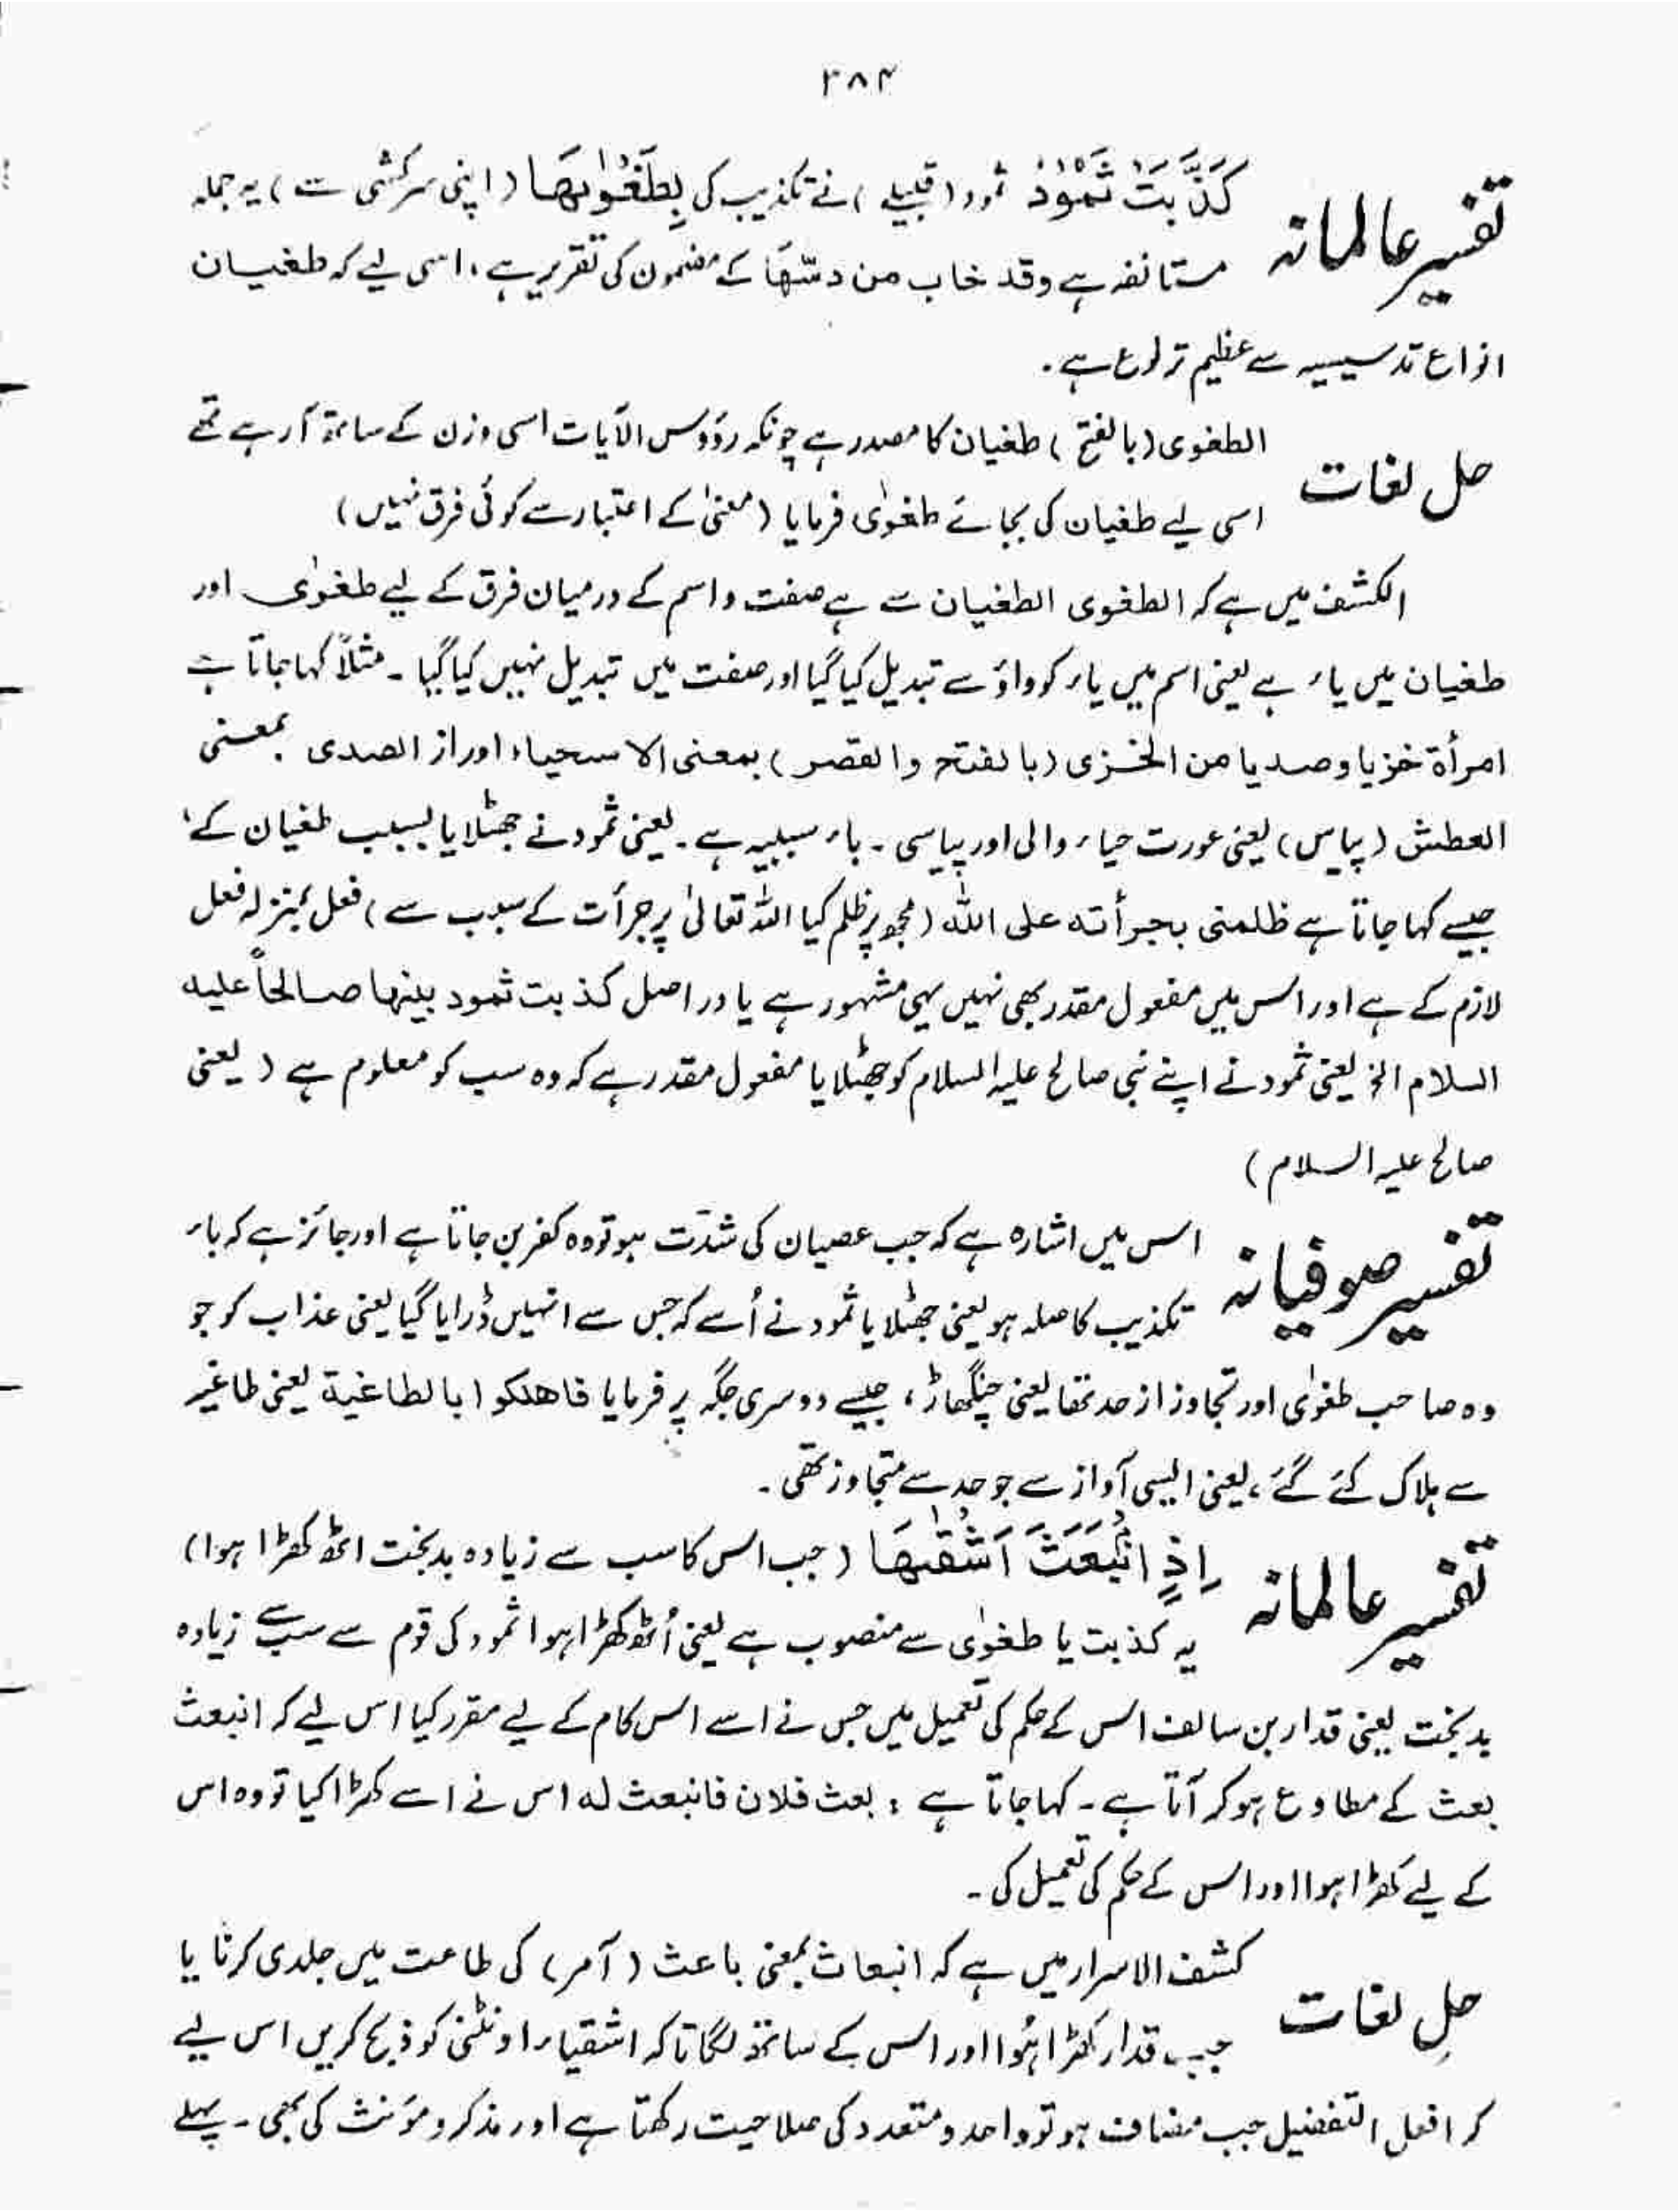 ۳۸۴
تفسیر عالمانہ
کَذَّبَتْ ثَمُوْدُ ثمود (قبیلے) نے تکذیب کی بِطَغْوٰىهَا (اپنی سرکشی سے) یہ جملہ
مستانفہ ہے وقد خاب من دسّٰهَا کے مضمون کی تقریر ہے، اسی لیے کہ طغیان
انواع تدسیسیہ سے عظیم تر نوع ہے۔
حل لغات
الطغوی (بالفتح) طغیان کا مصدر ہے چونکہ رؤوس الآیات اسی وزن کے ساتھ آرہے تھے
اسی لیے طغیان کی بجائے طغوٰی فرمایا (معنیٰ کے اعتبار سے کوئی فرق نہیں)
الکشف میں ہے کہ الطغوی الطغیان سے ہے صفت و اسم کے درمیان فرق کے لیے طغوٰی اور
طغیان میں یاء ہے یعنی اسم میں یاء کو واؤ سے تبدیل کیا گیا اور صفت میں تبدیل نہیں کیا گیا ۔ مثلاً کہا جاتا ہے
امرأۃ خزیا وصدیا من الخزی (بالفتح والقصر) بمعنی الاسحیاء اور از الصدی بمعنی
العطش (پیاس) یعنی عورت حیاء والی اور پیاسی ۔ باء سببیہ ہے ۔ یعنی ثمود نے جھٹلایا بسبب طغیان کے
جیسے کہا جاتا ہے ظلمنی بجرأتہ علی اللہ (مجھ پر ظلم کیا اللہ تعالیٰ پر جرأت کے سبب سے) فعل بمنزلہ فعل
لازم کے ہے اور اس میں مفعول مقدر بھی نہیں یہی مشہور ہے یا دراصل کذبت ثمود بینہا صالحاً علیہ
السلام الخ یعنی ثمود نے اپنے نبی صالح علیہ السلام کو جھٹلایا مفعول مقدر ہے کہ وہ سب کو معلوم ہے (یعنی
صالح علیہ السلام)
تفسیر صوفیانہ
اس میں اشارہ ہے کہ جب عصیان کی شدّت ہو تو وہ کفر بن جاتا ہے اور جائز ہے کہ باء
تکذیب کا صلہ ہو یعنی جھٹلایا ثمود نے اُسے کہ جس سے انہیں ڈرایا گیا یعنی عذاب کو جو
وہ صاحب طغوٰی اور تجاوز از حد تھا یعنی چنگھاڑ، جیسے دوسری جگہ پر فرمایا فاھلکوا بالطاغیة یعنی طاغیہ
سے ہلاک کئے گئے، یعنی ایسی آواز سے جو حد سے متجاوز تھی ۔
تفسیر عالمانہ
اِذِ انْۢبَعَثَ اَشْقٰىهَا (جب اس کا سب سے زیادہ بدبخت اٹھ کھڑا ہوا)
یہ کذبت یا طغوٰی سے منصوب ہے یعنی اُٹھ کھڑا ہوا ثمود کی قوم سے سب سے زیادہ
بدبخت یعنی قدار بن سالف اس کے حکم کی تعمیل میں جس نے اسے اس کام کے لیے مقرر کیا اس لیے کہ انبعث
بعث کے مطاوع ہو کر آتا ہے ۔ کہا جاتا ہے : بعث فلان فانبعث لہ اس نے اسے کھڑا کیا تو وہ اس
کے لیے کھڑا ہوا اور اس کے حکم کی تعمیل کی ۔
حلِ لغات
کشف الاسرار میں ہے کہ انبعاث بمعنی باعث (آمر) کی طاعت میں جلدی کرنا یا
جب قدار کھڑا ہُوا اور اس کے ساتھ لگا تاکہ اشقیاء اونٹنی کو ذبح کریں اس لیے
کہ افعل التفضیل جب مضاف ہو تو واحد و متعدد کی صلاحیت رکھتا ہے اور مذکر و مؤنث کی بھی ۔ پہلے